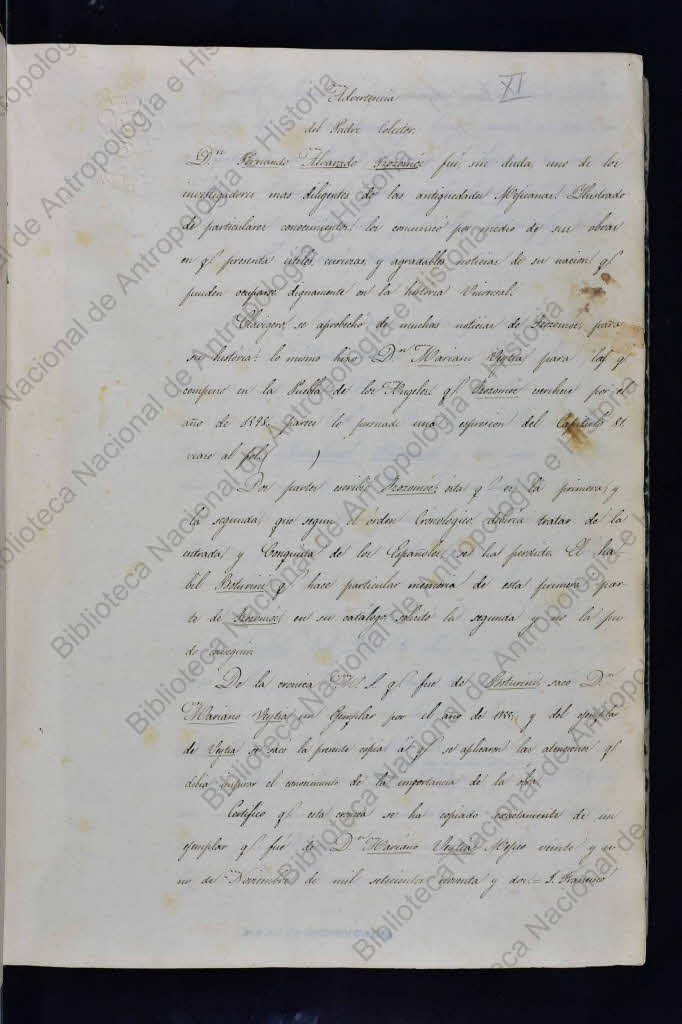 XI
Advertencia
del Padre Colector.
D.n Fernando Alvarado Tezozomoc fué, sin duda, uno de los
investigadores mas diligentes de las antiguedades Mejicanas. Ilustrado
de particulares conocimientos los comunicó por medio de sus obras
en q.e presenta útiles, curiosas, y agradables noticias de su nacion q.e
pueden ocuparse dignamente en la historia Universal.
Clavigero, se aprobechó de muchas noticias de Tezozomoc, para
su historia: lo mismo hizo D.n Mariano Veytia para las q.
compuso en la Puebla de los Angeles, q.e Tezozomoc escribiese por el
año de 1598, parece lo persuade una espresion del Capitulo 81.
vease al fol. ( )
Dos partes escribió Tezozomoc, esta q.e es la primera, y
la segunda, que segun el órden Cronologico, deberia tratar de la
entrada y Conquista de los Españoles, se ha perdido. El ha-
bil Boturini q.e hace particular memoria de esta primera par-
te de Tezozomoc, en su catálogo, solicitó la segunda y no la pu-
do conseguir.
De la cronica M. S. q.e fué de Boturini, sacó D.n
Mariano Veytia un Ejemplar por el año de 1755, y del ejemplar
de Veytia se saco la presente copia á q.e se aplicaron las atenciones q.e
debia inspirar el conocimiento de la importancia de la obra.
Certifico q.e esta cronica se ha copiado exactamente de un
ejemplar q.e fué de D.n Mariano Veytia. Mejico veinte y u-
no de Noviembre de mil setecientos noventa y dos. = F. Francisco
Biblioteca Nacional de Antropología e Historia